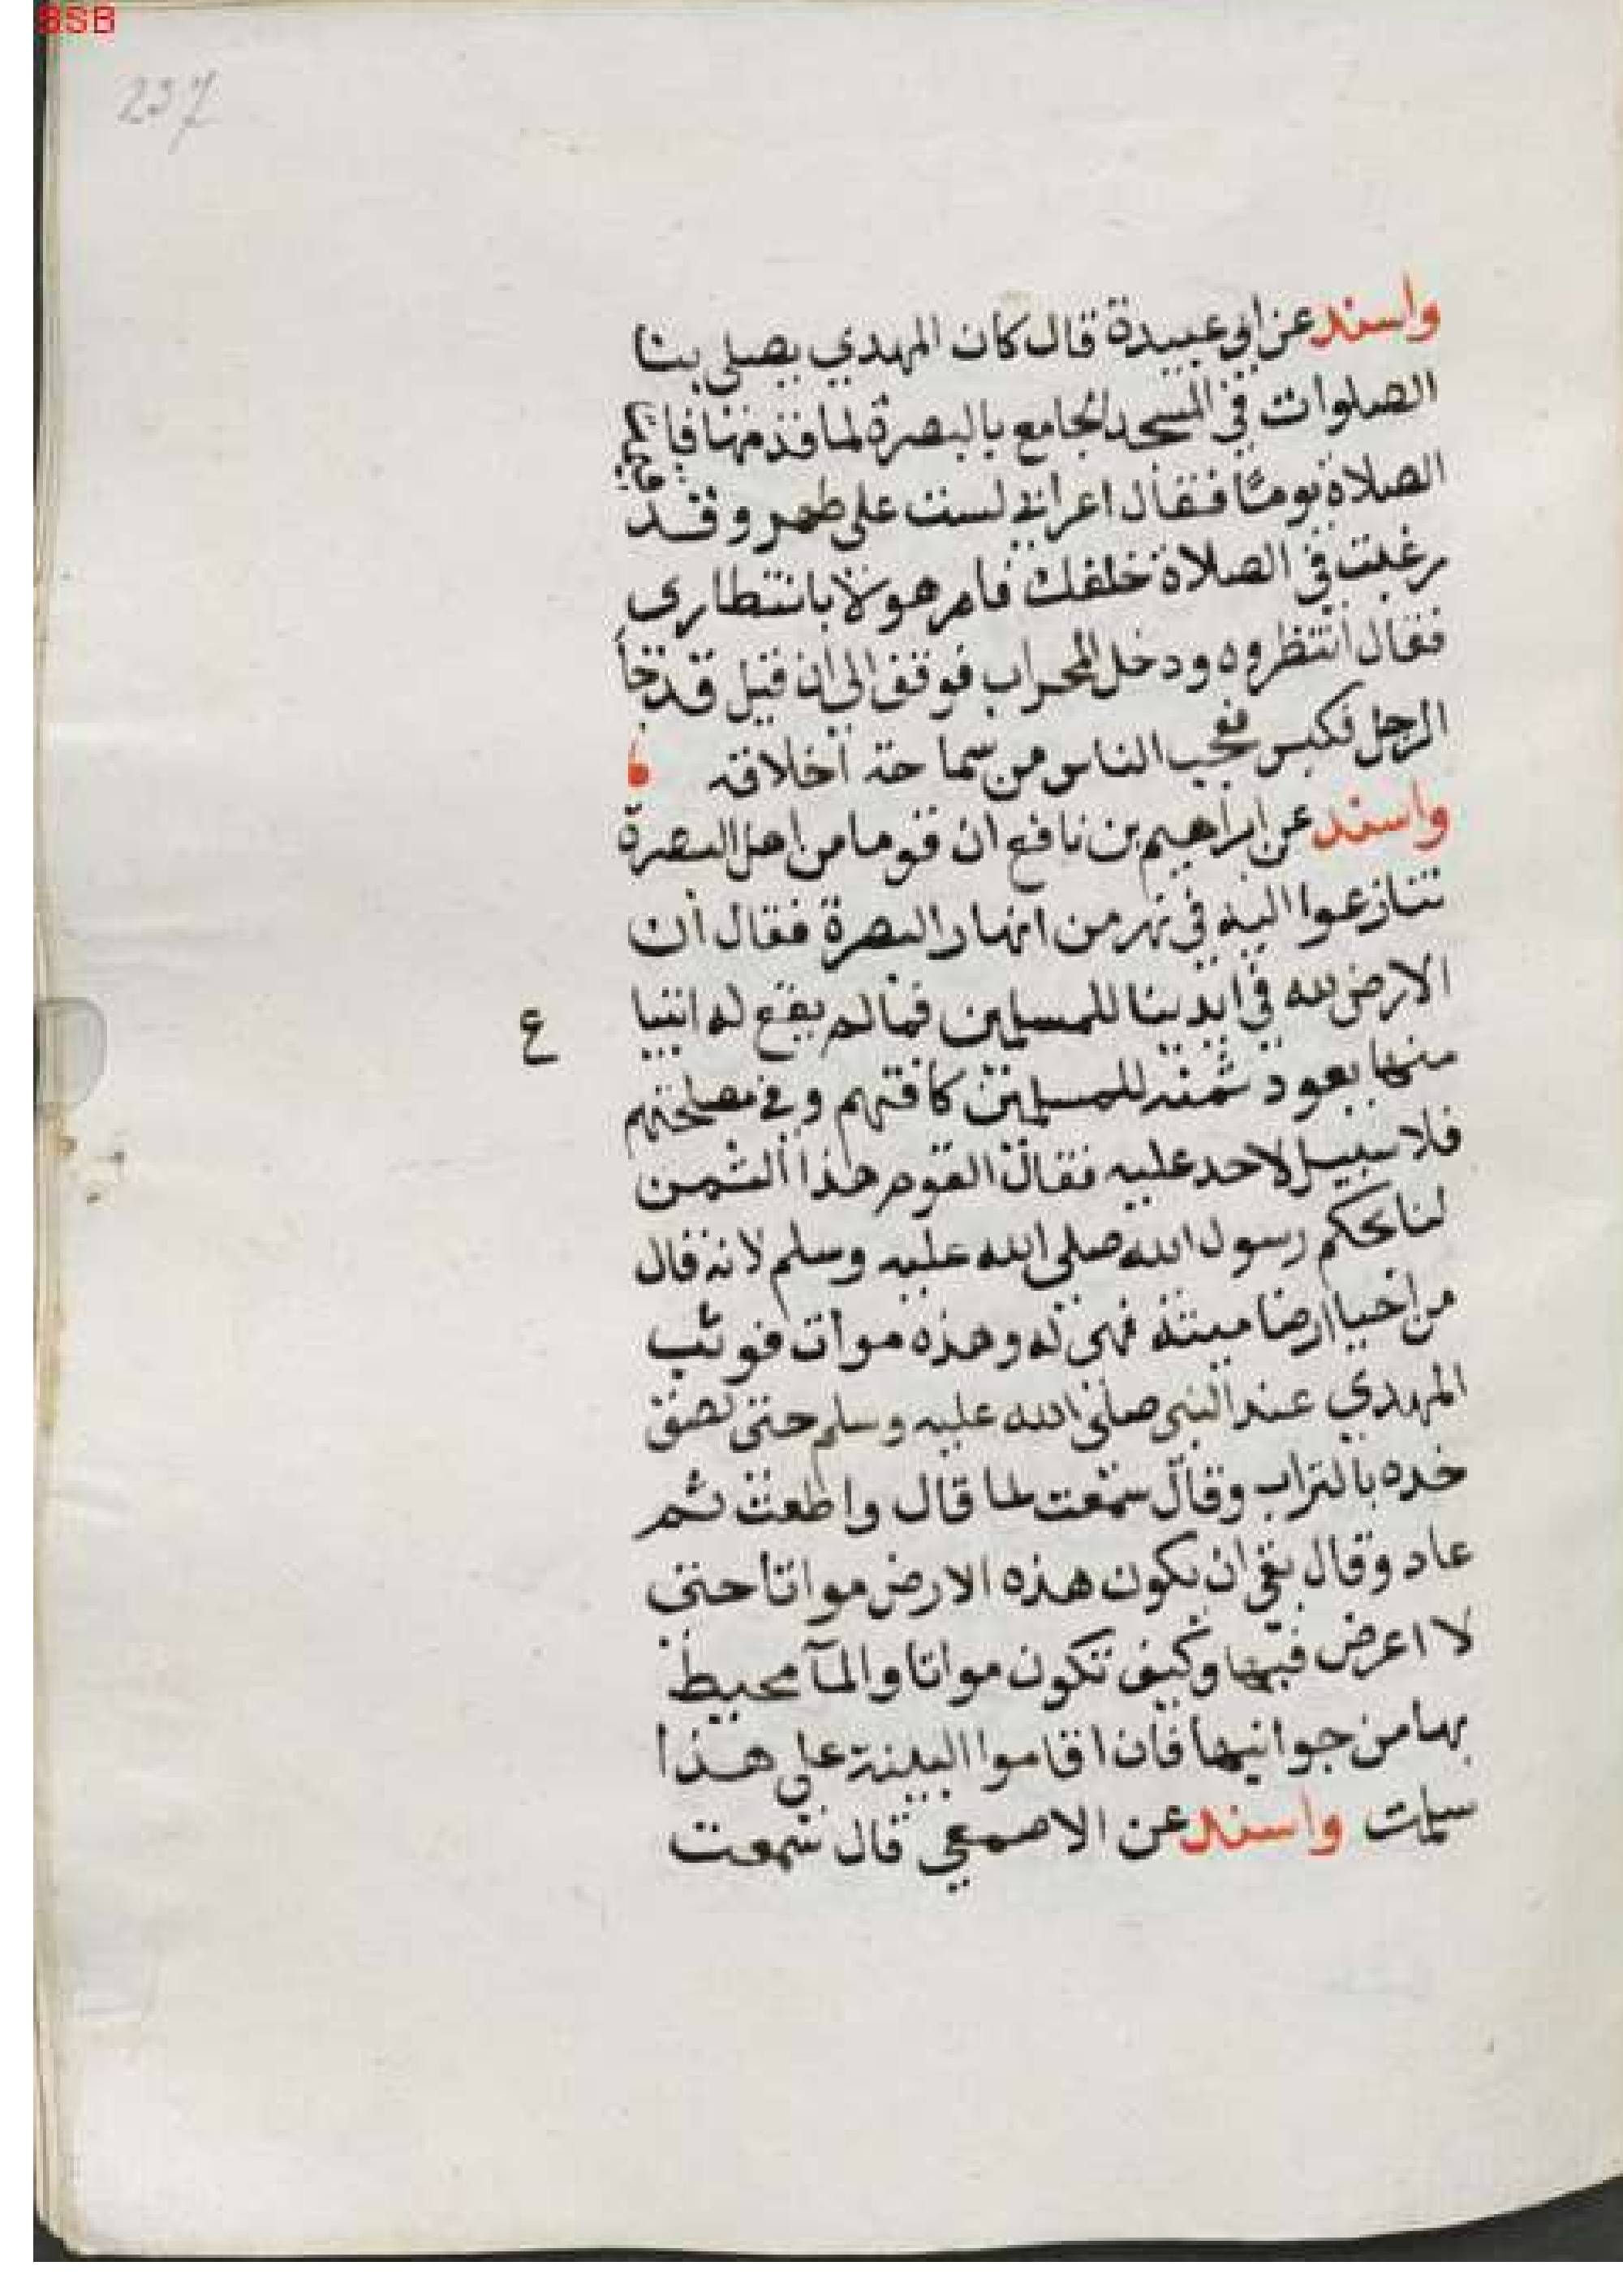 BSB
237
واسند عن ابي عبيدة قال كان المهدي يصلي بنا
الصلوات في المسجد الجامع بالبصرة لما قدمها فاقيمت
الصلاة يوما فقال اعرابي لست على طهر وقد
رغبت في الصلاة خلفك فامر هولا بانتظاري
فقال انتظروه ودخل المحراب فوقف الى ان قيل قد جا
الرجل فكبر فعجب الناس من سماحة اخلاقه
واسند عن ابراهيم بن نافع ان قوما من اهل البصرة
تنازعوا اليه في نهر من انهار البصرة فقال ان
الارض لله في ايدينا للمسلمين فمالم يقع له ابتيا
منها يعود ثمنه للمسلمين كافتهم وفي مصلحتهم
ع
فلا سبيل لاحد عليه فقال القوم هذا الثمن
لنا بحكم رسول الله صلى الله عليه وسلم لانه قال
من احيا ارضا ميتة فهي له وهذه موات فوثب
المهدي عند النبي صلى الله عليه وسلم حتى لصق
خده بالتراب وقال سمعت لما قال واطعت ثم
عاد وقال بقي ان يكون هذه الارض مواتا حتى
لا اعرض فيها وكيف تكون مواتا والمآ محيط
بها من جوانبها فان اقاموا البينة على هذا
سلمت واسند عن الاصمعي قال سمعت